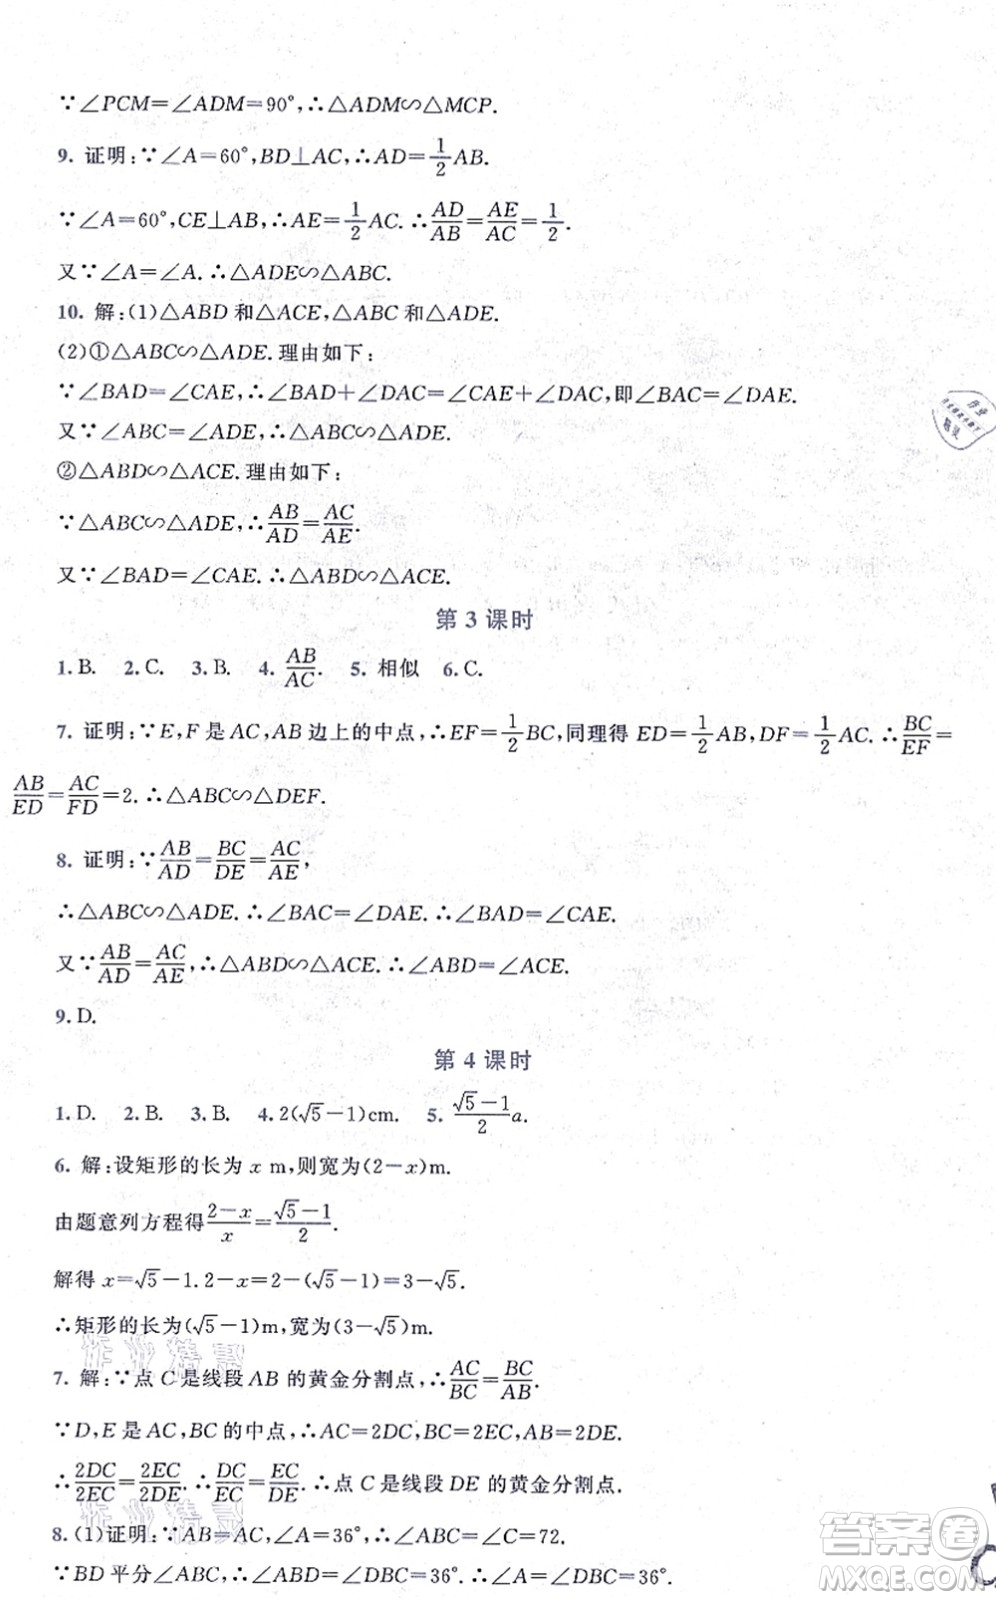 ∵∠PCM=∠ADM=90°,∴△ADM∽△MCP.
9. 证明:∵∠A=60°,BD⊥AC,∴AD=1/2AB.
∵∠A=60°,CE⊥AB,∴AE=1/2AC.∴AD/AB=AE/AC=1/2.
又∵∠A=∠A.∴△ADE∽△ABC.
10. 解:(1)△ABD和△ACE,△ABC和△ADE.
(2)①△ABC∽△ADE.理由如下:
∵∠BAD=∠CAE,∴∠BAD+∠DAC=∠CAE+∠DAC,即∠BAC=∠DAE.
又∵∠ABC=∠ADE,∴△ABC∽△ADE.
②△ABD∽△ACE.理由如下:
∵△ABC∽△ADE,∴AB/AD=AC/AE.
又∵∠BAD=∠CAE.∴△ABD∽△ACE.
第3课时
1. B. 2. C. 3. B. 4. AB/AC. 5. 相似 6. C.
7. 证明:∵E,F是AC,AB边上的中点,∴EF=1/2BC,同理得ED=1/2AB,DF=1/2AC.∴BC/EF=
AB/ED=AC/FD=2.∴△ABC∽△DEF.
8. 证明:∵AB/AD=BC/DE=AC/AE,
∴△ABC∽△ADE.∴∠BAC=∠DAE.∴∠BAD=∠CAE.
又∵AB/AD=AC/AE,∴△ABD∽△ACE.∴∠ABD=∠ACE.
9. D.
第4课时
1. D. 2. B. 3. B. 4. 2(√5-1)cm. 5. (√5-1)/2 a.
6. 解:设矩形的长为x m,则宽为(2-x)m.
由题意列方程得(2-x)/x=(√5-1)/2.
解得x=√5-1.2-x=2-(√5-1)=3-√5.
∴矩形的长为(√5-1)m,宽为(3-√5)m.
7. 解:∵点C是线段AB的黄金分割点,∴AC/BC=BC/AB.
∵D,E是AC,BC的中点,∴AC=2DC,BC=2EC,AB=2DE.
∴2DC/2EC=2EC/2DE.∴DC/EC=EC/DE.∴点C是线段DE的黄金分割点.
8. (1)证明:∵AB=AC,∠A=36°,∴∠ABC=∠C=72.
∵BD平分∠ABC,∴∠ABD=∠DBC=36°.∴∠A=∠DBC=36°.
答案圈
MXQE.COM
作业精灵
作业精灵